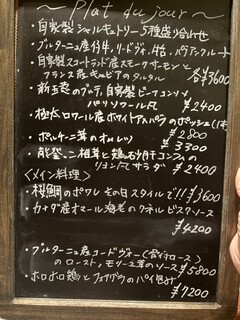 ～ Plat du jour ～
・自家製シャルキュトリー5種盛り合わせ
・ブルターニュ産仔牛、リ・ド・ヴォー、
・自家製スコットランド産スモークサーモンと
フランス産キャビアのタルタル 各¥3600
・新玉葱の 自家製ビーフコンソメ
パリソワール風 ¥2400
・極太ロワール産ホワイトアスパラのポッシェ(1本)
¥2800
・ポルチーニ茸のオムレツ ¥3300
・能登、二椎茸と鶏砂肝コンフィの
リヨン風サラダ ¥2400
〈メイン料理〉
・桜鯛のポワレ その日スタイルで!! ¥3600
・カナダ産オマール海老のクネル ビスクソース
¥4200
・ブルターニュ産コードヴォー(骨付ロース)
のロースト モリーユ茸のソース ¥5800
・ホロホロ鶏とフォアグラのパイ包み
¥7200